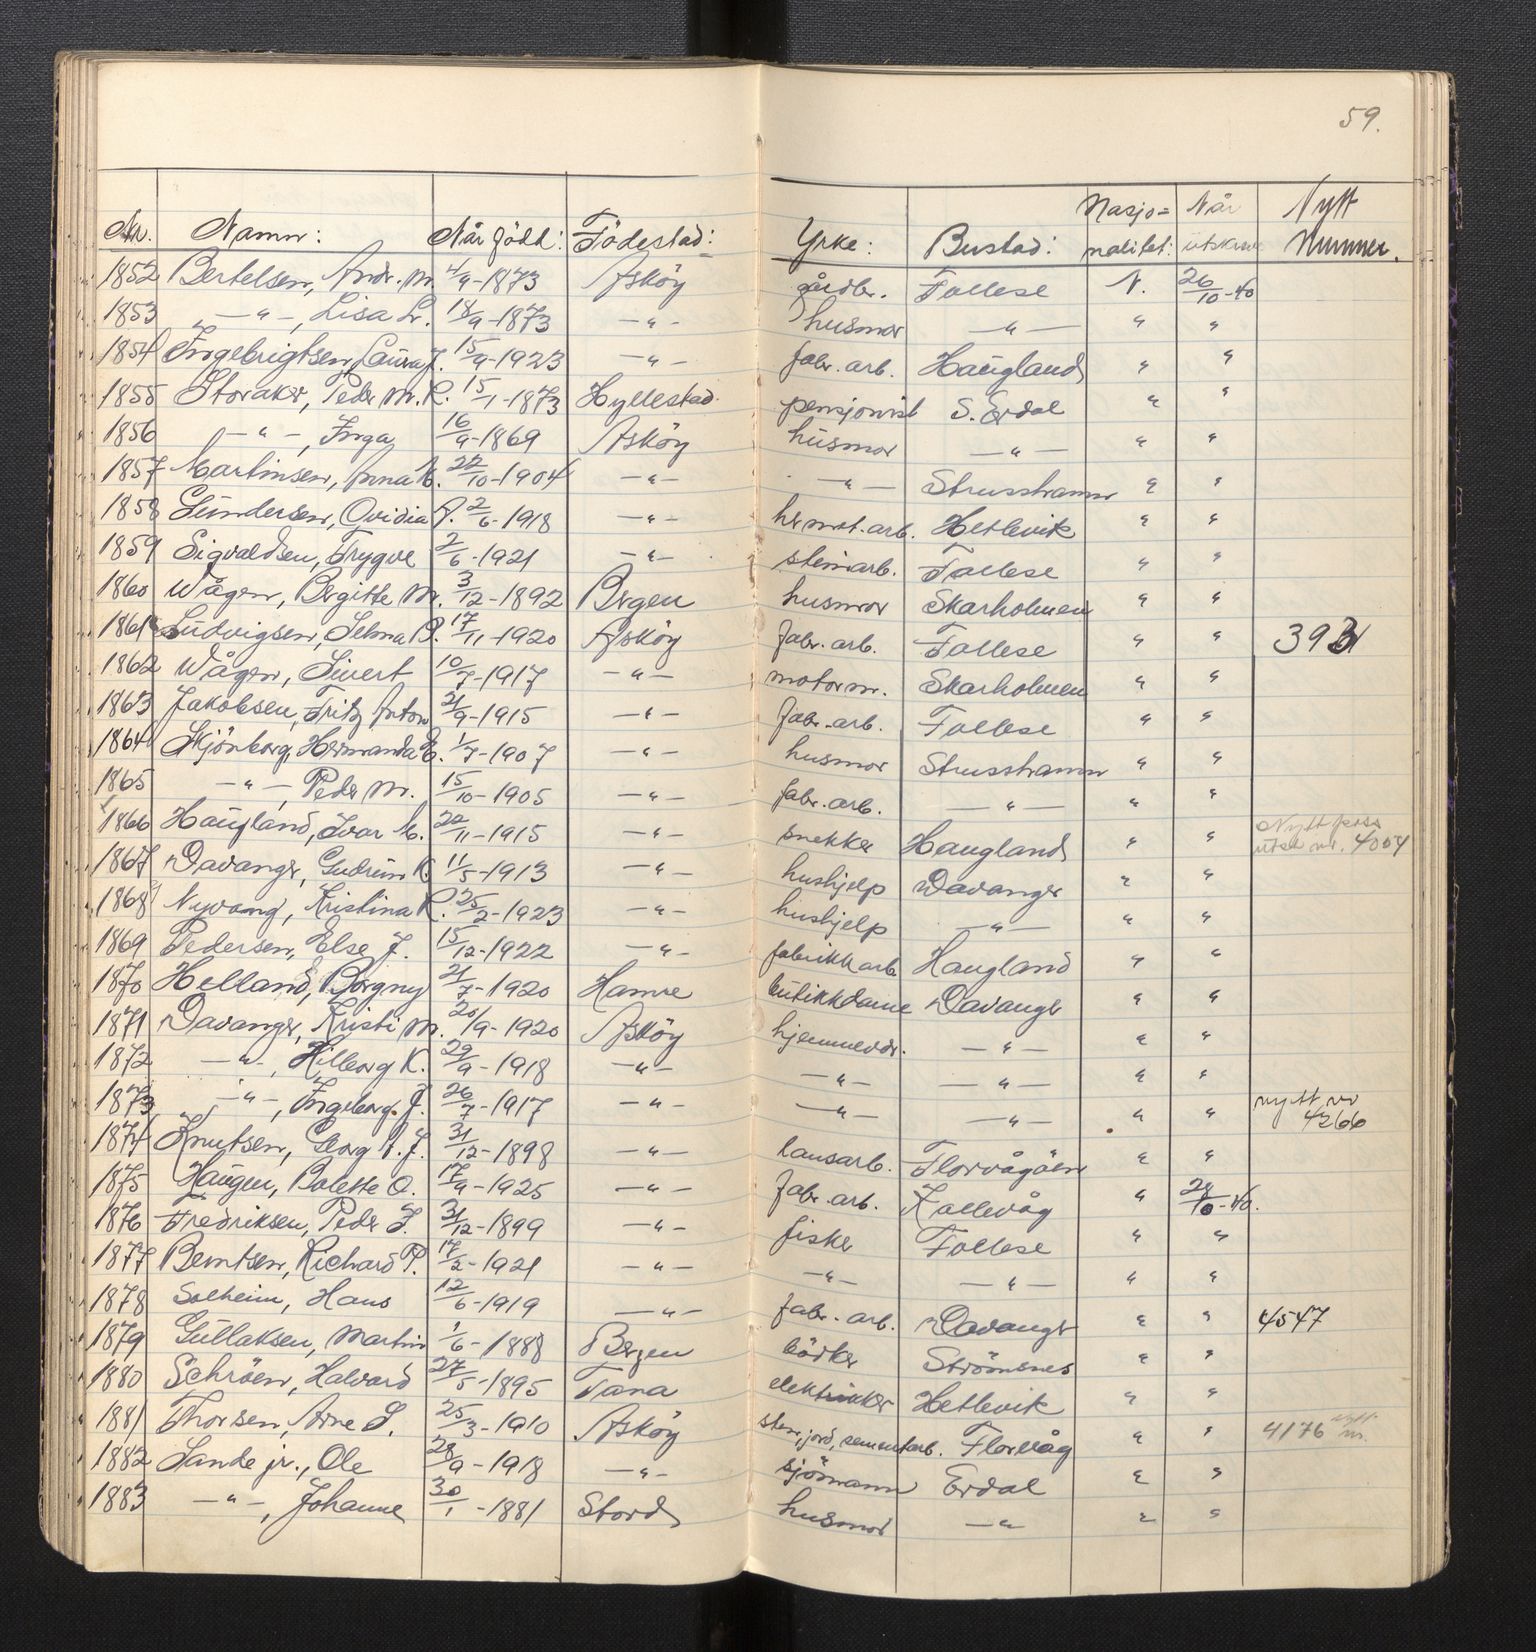 59.
Nr. Namn: Når född: Födestad: Yrke: Bustad: Nasjo= nalitet: Når utskr. Nytt Nummer.
1852 Bertelsen, Andr. M. 4/9-1873 Asköy gårdbr. Follese N. 26/10-40
1853 „ — " —, Lisa Sr. 18/9-1873 — " — husmor — " — " "
1854 Ingebrigtsen, Laura J. 15/9-1923 — " — fabr. arb. Haugland " "
1855 Storaker, Peder M. R. 15/1-1873 Hyllestad. pensjonist S. Erdal " "
1856 — " —, Inga 16/9-1869 Asköy husmor — " — " "
1857 Martinsen, Anna M. 22/10-1904 — " — — " — Strusshamn " "
1858 Gundersen, Ovidia A. 2/6-1918 — " — hermet. arb. Hetlevik " "
1859 Sigvaldsen, Trygve 2/6-1921 — " — steinarb. Follese " "
1860 Wågen, Bergitte M. 3/12-1892 Bergen husmor Skarholmen " "
1861 Ludvigsen, Selma B. 17/11-1920 Asköy fabr. arb. Follese " " 3931
1862 Wågen, Sivert 10/7-1917 — " — motorm. Skarholmen " "
1863 Jakobsen, Fritz Anton 21/9-1915 — " — fabr. arb. Follese " "
1864 Skjönberg, Hermanda E. 1/7-1907 — " — husmor Strusshamn " "
1865 — " —, Peder M. 15/10-1905 — " — fabr. arb. — " — " "
1866 Haugland, Ivar M. 22/11-1915 — " — snekker Haugland " " Nytt pass utst. nr. 4004
1867 Davanger, Gudrun K. 11/5-1913 — " — hushjelp Davanger " "
1868 Nyvang, Kristina R. 25/2-1923 — " — hushjelp — " — " "
1869 Pedersen, Else J. 15/12-1922 — " — fabrikkarb Haugland " "
1870 Helland, Borgny 21/7-1920 Hamre butikkdame Davanger " "
1871 Davanger, Kristi M. 20/9-1920 Asköy hjemmevær. — " — " "
1872 — " —, Hilborg K. 29/9-1918 — " — — " — — " — " "
1873 — " —, Ingeborg J. 26/7-1917 — " — — " — — " — " " nytt nr 4266
1874 Knutsen, Georg A. J. 31/12-1898 — " — lausarb. Florvågöen " "
1875 Haugen, Bolette O. 17/9-1925 — " — fabr. arb. Kollevåg " 28/10-40.
1876 Fredriksen, Peder J. 31/12-1899 — " — fisker Follese " "
1877 Berntsen, Richard P. 17/2-1921 — " — — " — — " — " "
1878 Solheim, Hans 12/6-1919 — " — fabr. arb. Davanger " " 4547
1879 Gullaksen, Martin 1/6-1888 Bergen bödker Strömsnes " "
1880 Schröen, Halvard 27/5-1895 Tana elektrikker Hetlevik " "
1881 Thorsen, Arne S. 25/3-1910 Asköy sten, jord, sementarb. Florvåg " " 4176 nytt nr.
1882 Sande jr., Ole 28/9-1918 — " — sjömann Erdal " "
1883 — " —, Johanne 30/1-1881 Stord husmor — " — " "